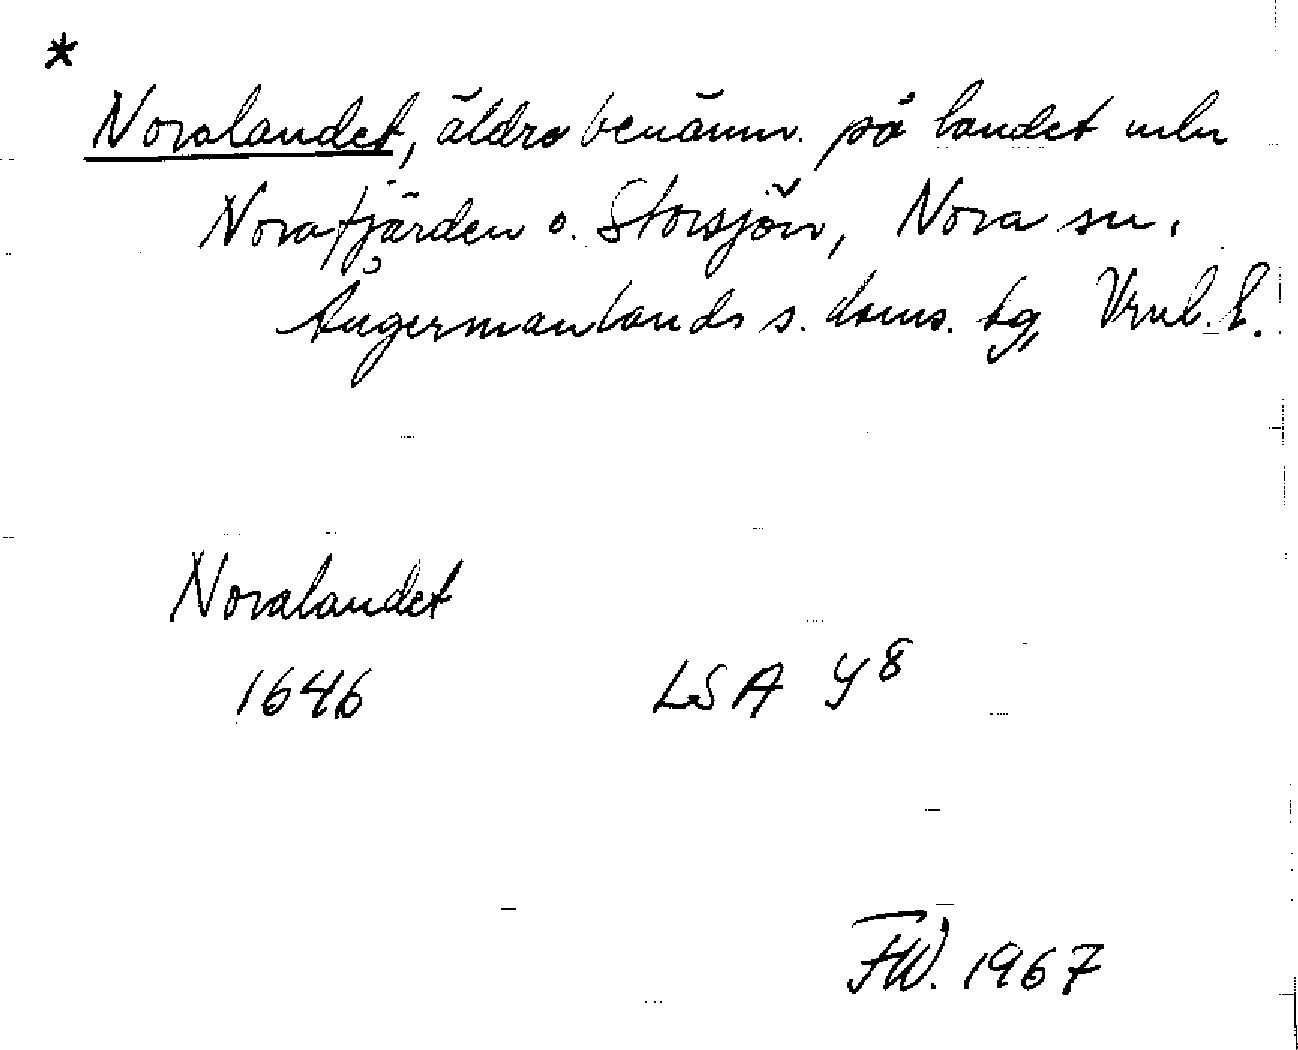 *
Noralandet, äldre benämn. på landet mln
Norafjärden o. Storsjön, Nora sn.
Ångermanlands s. doms. tg, Vrnl. l.
Noralandet
1646 LSA Y8
FW. 1967